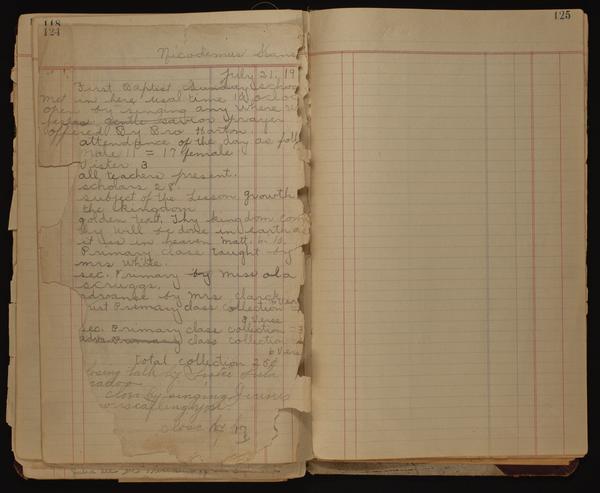 118
124
125
Nicodemus Kans
July 21, 19
First Baptist Sunday School
Met in here usal time 10 oclock
open by singing any where
gentle savior prayer
offered By Bro Horton.
attendance of the day as foll
Male 11 = 17 female
Vister 3
all teachers present.
scholars 28.
subject of the Lesson growth
the kingdom
golden text. Thy kingdom com
thy will be done in earth as
it is in heaven matt. 6:10.
Primary class taught by
mrs White.
sec. Primary by miss ola
scruggs.
advanse by Mrs Clarck
6 Vers
first Primary class collection
9 Verse
sec. Primary class collection = 3
adva Primary class collection
6 Verse
total collection 28¢
closing talk by Sister Lula
close by singing
close by